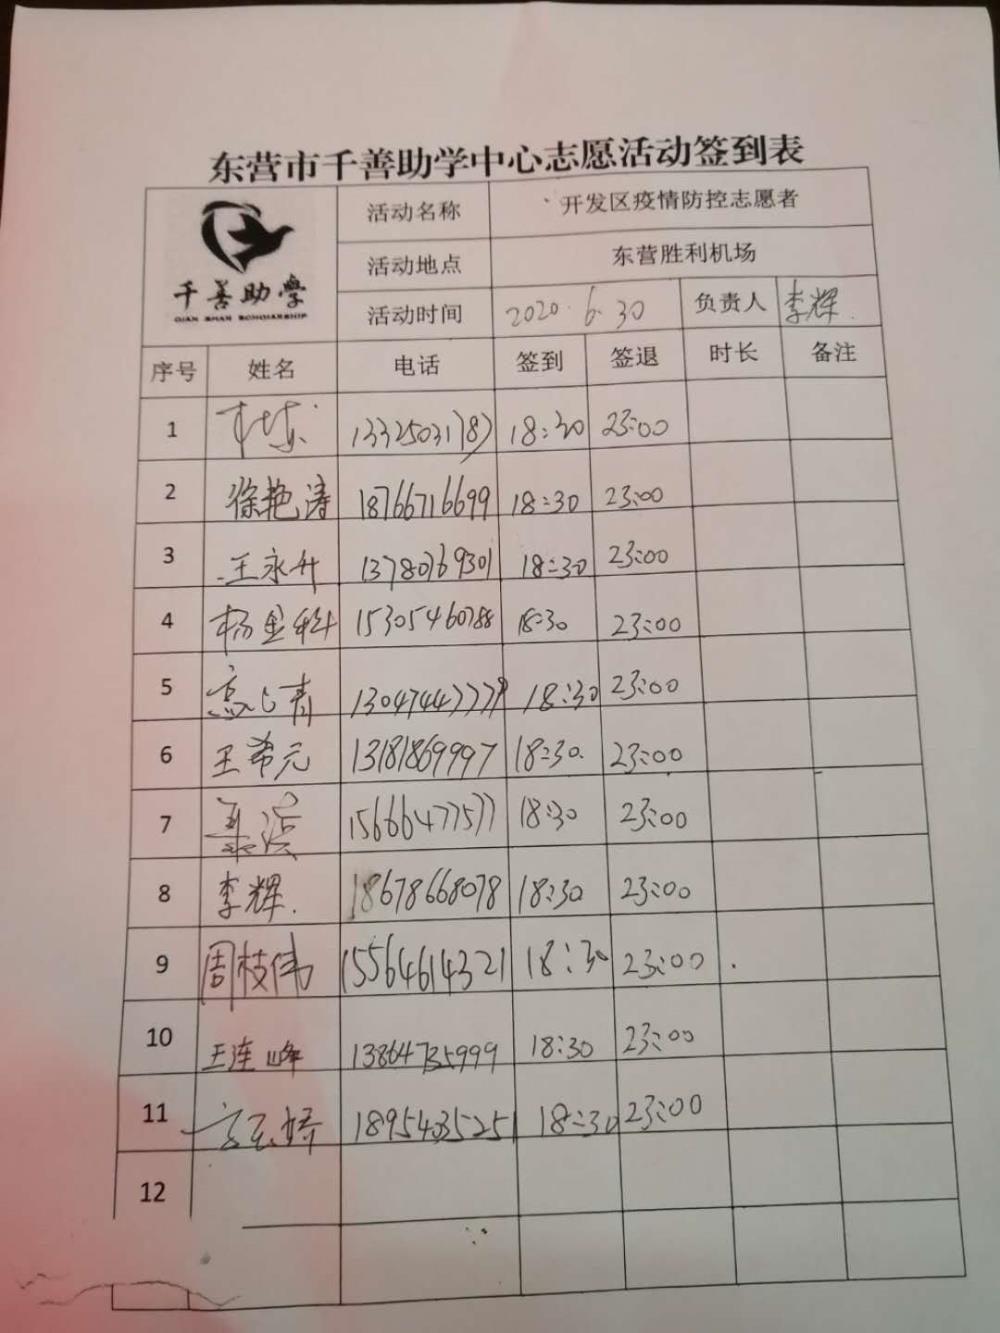 东营市千善助学中心志愿活动签到表
千善助学
QIAN SHAN SCHOLARSHIP
活动名称 开发区疫情防控志愿者
活动地点 东营胜利机场
活动时间 2020.6.30 负责人 李辉
序号 姓名 电话 签到 签退 时长 备注
1 13325031787 18:30 23:00
2 徐艳涛 18766716699 18:30 23:00
3 王永升 13780769301 18:30 23:00
4 15305460788 18:30 23:00
5 13047447779 18:30 23:00
6 王希元 13181869997 18:30 23:00
7 15666477577 18:30 23:00
8 李辉 18678668078 18:30 23:00
9 周枝伟 15564614321 18:30 23:00
10 王连峰 13864735999 18:30 23:00
11 18954035251 18:30 23:00
12